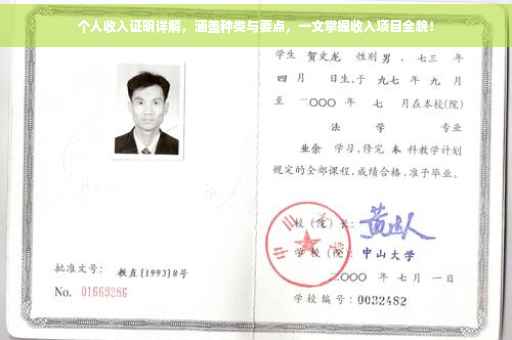 个人收入证明详解，涵盖种类与要点，一文掌握收入项目全貌！
学生 贺文龙 性别 男 ，一、七三 年
四 月 日生，于 九七 年 九 月
至 二〇〇〇 年 七 月在本校(院)
法 学 专业
业余 学习，修完 本 科教学计划
规定的全部课程，成绩合格，准予毕业。
校（院）长：
学 校（院）： 中山大学
二〇〇〇 年 七 月 一 日
批准文号： 教直[1993]8号
No. 01669286
学校编号：0032482